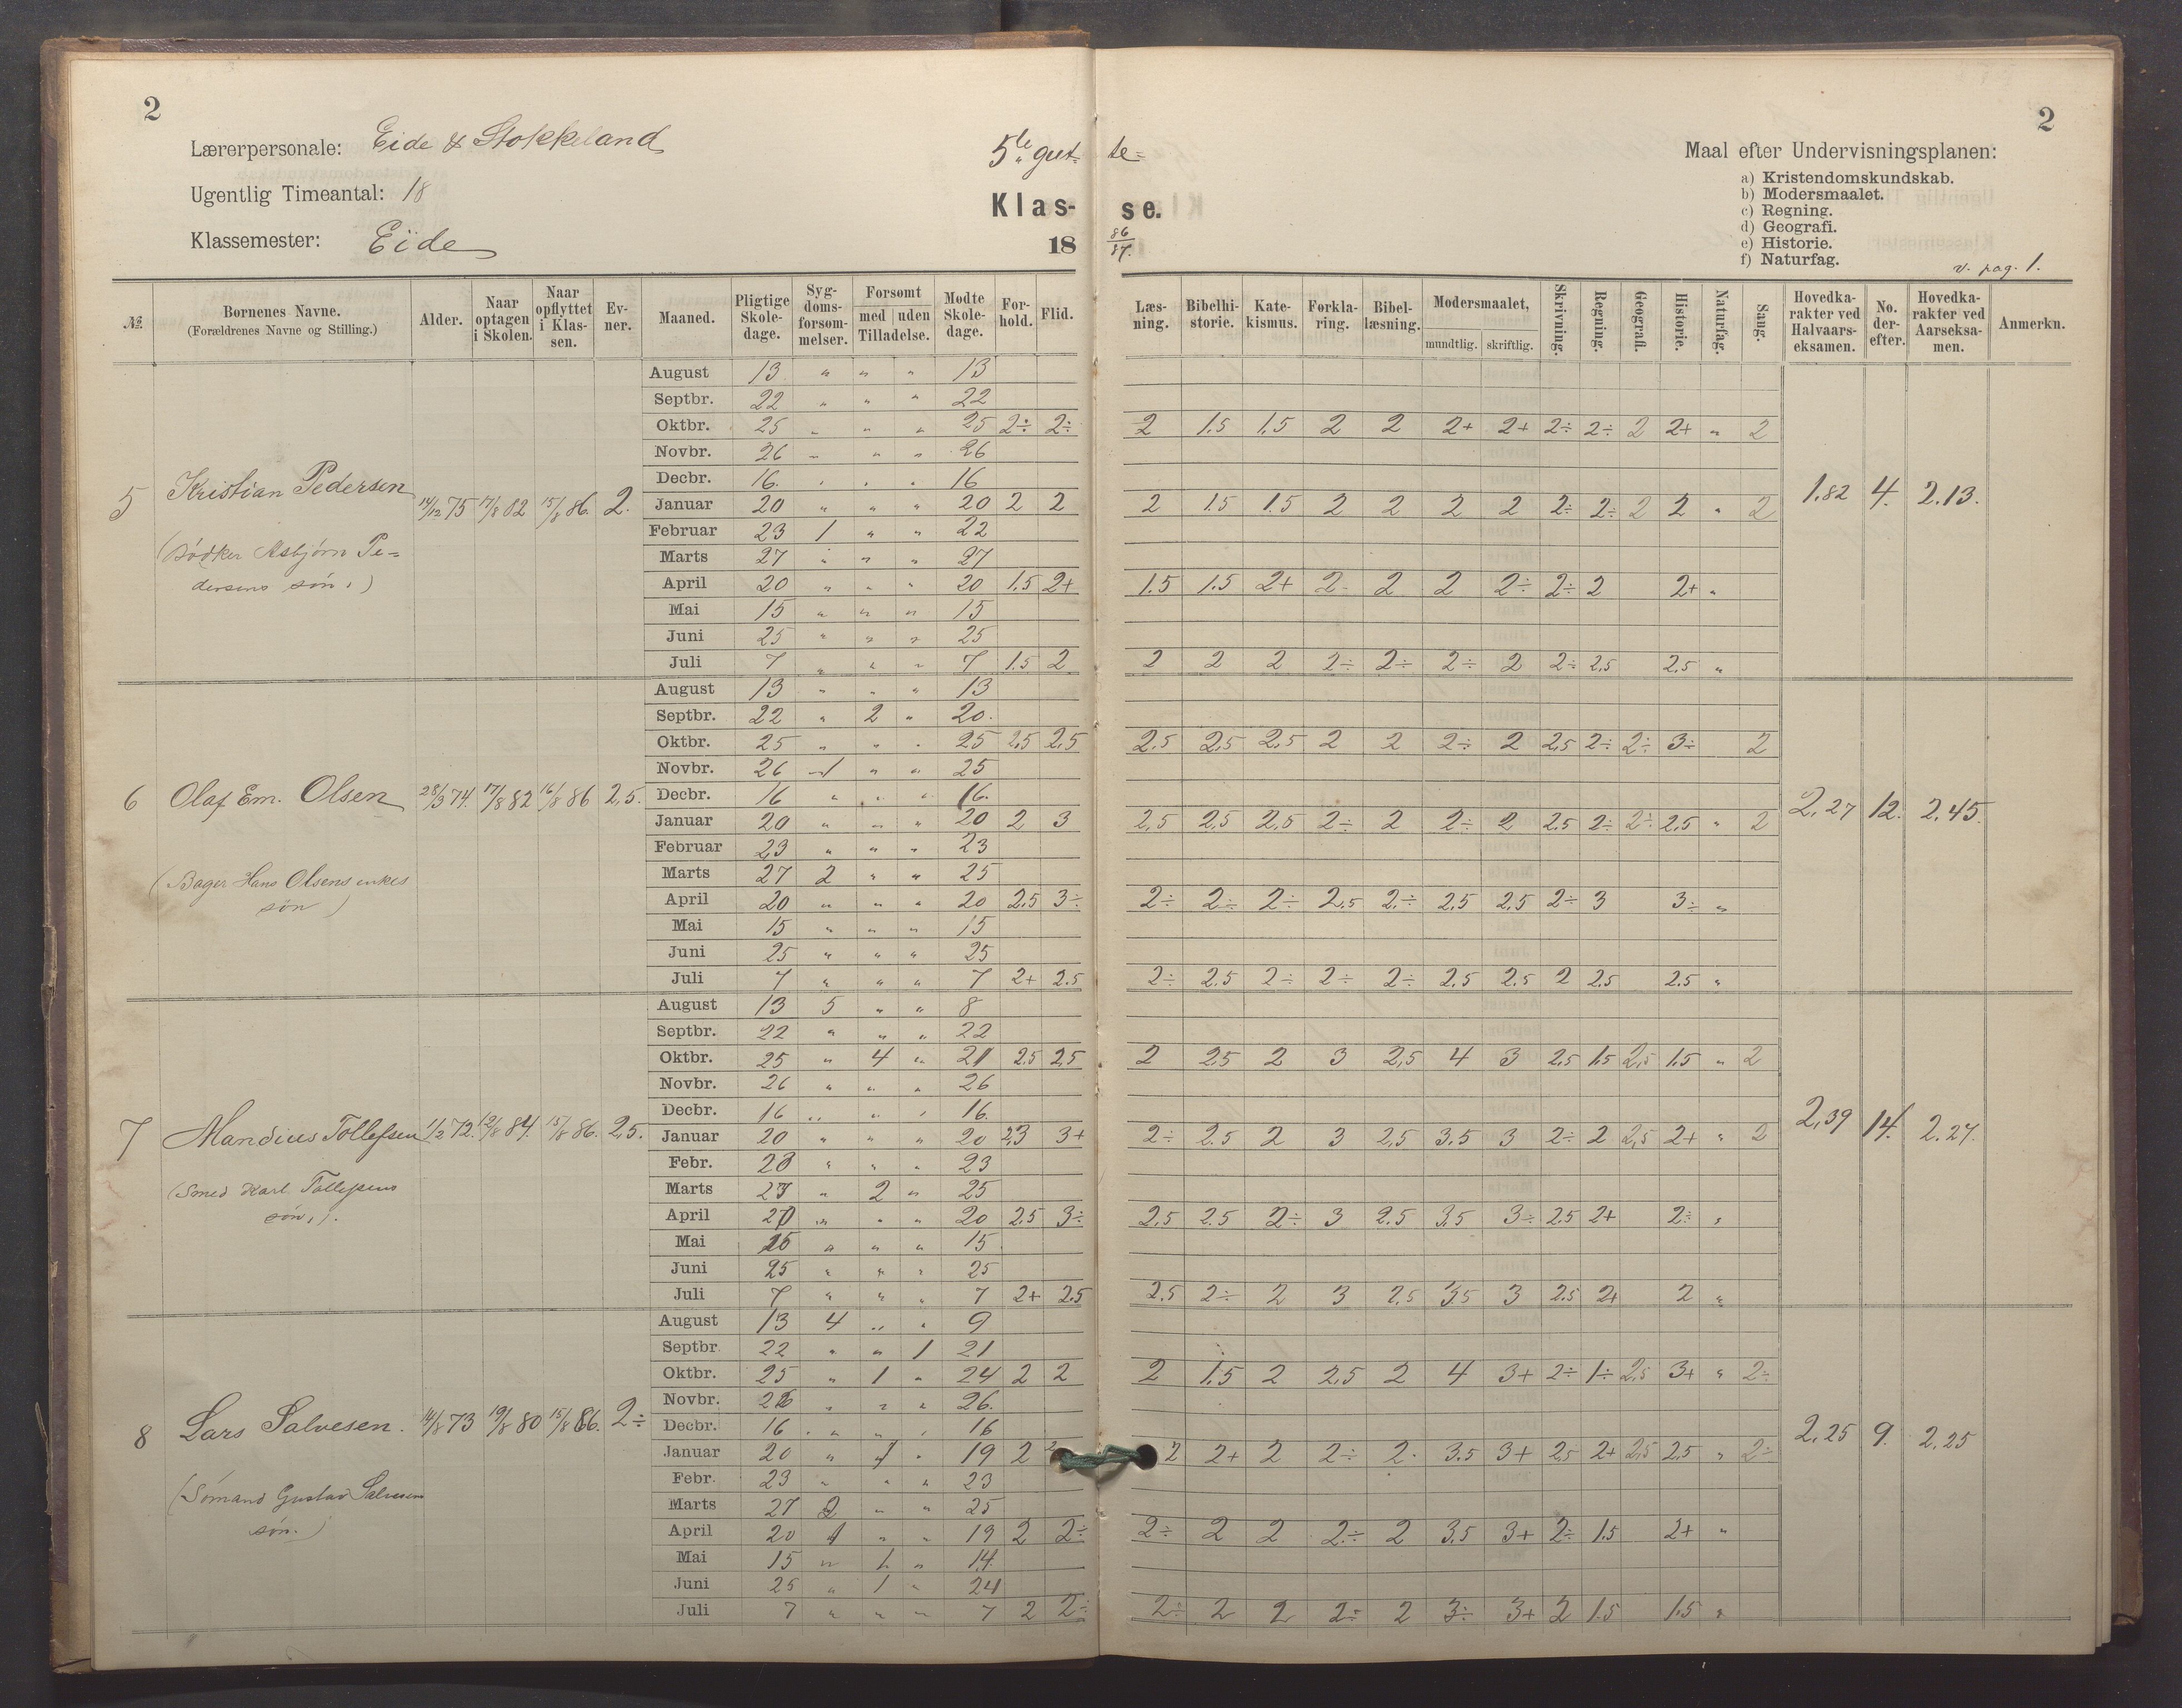 2
Lærerpersonale: Eide & Stokkeland
Ugentlig Timeantal: 18
Klassemester: Eide
5te gut= te=
Klas- se.
18 86/87.
2
Maal efter Undervisningsplanen:
a) Kristendomskundskab.
b) Modersmaalet.
c) Regning.
d) Geografi.
e) Historie.
f) Naturfag.
v. pag. 1.
№ Børnenes Navne. (Forældrenes Navne og Stilling.) Alder. Naar optagen i Skolen. Naar opflyttet i Klassen. Evner. Maaned. Pligtige Skoledage. Sygdomsforsømmelser. Forsømt med uden Tilladelse. Mødte Skoledage. Forhold. Flid. Læsning. Bibelhistorie. Katekismus. Forklaring. Bibellæsning. Modersmaalet, mundtlig. skriftlig. Skrivning. Regning. Geografi. Historie. Naturfag. Sang. Hovedkarakter ved Halvaarseksamen. No. derefter. Hovedkarakter ved Aarseksamen. Anmerkn.
5 Kristian Pedersen 14/12 75 17/8 82 15/8 86. 2. 1.82 4. 2.13.
(Bødker Asbjørn Pe=
dersens søn.)
August 13 " " " 13
Septbr. 22 " " " 22
Oktbr. 25 " " " 25 2÷ 2÷ 2 1.5 1.5 2 2 2+ 2+ 2÷ 2÷ 2 2+ " 2
Novbr. 26 " " " 26
Decbr. 16. " " " 16
Januar 20 " " " 20 2 2 2 1.5 1.5 2 2 2 2 2÷ 2÷ 2 2 " 2
Februar 23 1 " " 22
Marts 27 " " " 27
April 20 " " " 20 1.5 2+ 1.5 1.5 2+ 2- 2 2 2÷ 2÷ 2 2+ "
Mai 15 " " " 15
Juni 25 " " " 25
Juli 7 " " " 7 1.5 2 2 2 2 2÷ 2÷ 2÷ 2 2÷ 2,5 2,5 "
6 Olaf Em. Olsen 28/3 74. 17/8 82 16/8 86 2,5. 2,27 12. 2,45.
(Bager Hans Olsens enkes
søn)
August 13 " " " 13
Septbr. 22 " 2 " 20.
Oktbr. 25 " " " 25 2,5 2,5 2,5 2,5 2,5 2 2 2÷ 2 2,5 2÷ 2÷ 3÷ 2
Novbr. 26 1 " " 25
Decbr. 16 " " " 16.
Januar 20 " " " 20 2 3 2,5 2,5 2,5 2÷ 2 2÷ 2 2.5 2÷ 2÷ 2,5 " 2
Februar 23 " " " 23
Marts 27 2 " " 25
April 20 " " " 20 2,5 3÷ 2÷ 2÷ 2÷ 2,5 2÷ 2,5 2,5 2÷ 3 3÷ "
Mai 15 " " " 15
Juni 25 " " " 25
Juli 7 " " " 7 2+ 2.5 2÷ 2.5 2÷ 2÷ 2÷ 2.5 2.5 2 2.5 2.5 "
7 Mandius Tollefsen 1/2 72. 12/8 84. 15/8 86. 2,5. 2,39 14. 2.27.
(Smed Karl Tollefsens
søn.).
August 13 5 " " 8
Septbr. 22 " " " 22
Oktbr. 25 " 4 " 21 2,5 2,5 2 2,5 2 3 2,5 4 3 2,5 1,5 2,5 1.5 " 2
Novbr. 26 " " " 26
Decbr. 16 " " " 16.
Januar 20 " " " 20 2,3 3+ 2÷ 2.5 2 3 2,5 3.5 3 2÷ 2 2,5 2+ " 2
Febr. 23 " " " 23
Marts 27 " 2 " 25
April 20 " " " 20 2.5 3÷ 2,5 2.5 2÷ 3 2.5 3,5 3÷ 2.5 2+ 2÷ "
Mai 15 " " " 15
Juni 25 " " " 25
Juli 7 " " " 7 2+ 2.5 2.5 2÷ 2 3 2,5 3.5 3 2.5 2+ 2 "
8 Lars Salvesen. 14/8 73 19/8 80 15/8 86. 2÷ 2,25 9. 2,25
(Sømand Gustav Salvesens
søn.)
August 13 4 " " 9
Septbr. 22 " " 1 21
Oktbr. 25 " 1 " 24 2 2 2 1.5 2 2,5 2 4 3+ 2÷ 1÷ 2,5 3+ " 2÷
Novbr. 26 " " " 26.
Decbr. 16 " " " 16
Januar 20 " 1 " 19 2 2 2 2+ 2 2÷ 2. 3.5 3+ 2,5 2+ 2,5 2,5 " 2÷
Febr. 23 " " " 23
Marts 27 2 " " 25
April 20 1 " " 19 2 2÷ 2÷ 2 2 2÷ 2 3.5 3+ 2÷ 1.5 2+ "
Mai 15 " 1. " 14.
Juni 25 " 1 " 24
Juli 7 " " " 7 2 2÷ 2÷ 2 2 2÷ 2 3÷ 3+ 2 1.5 1.5 "